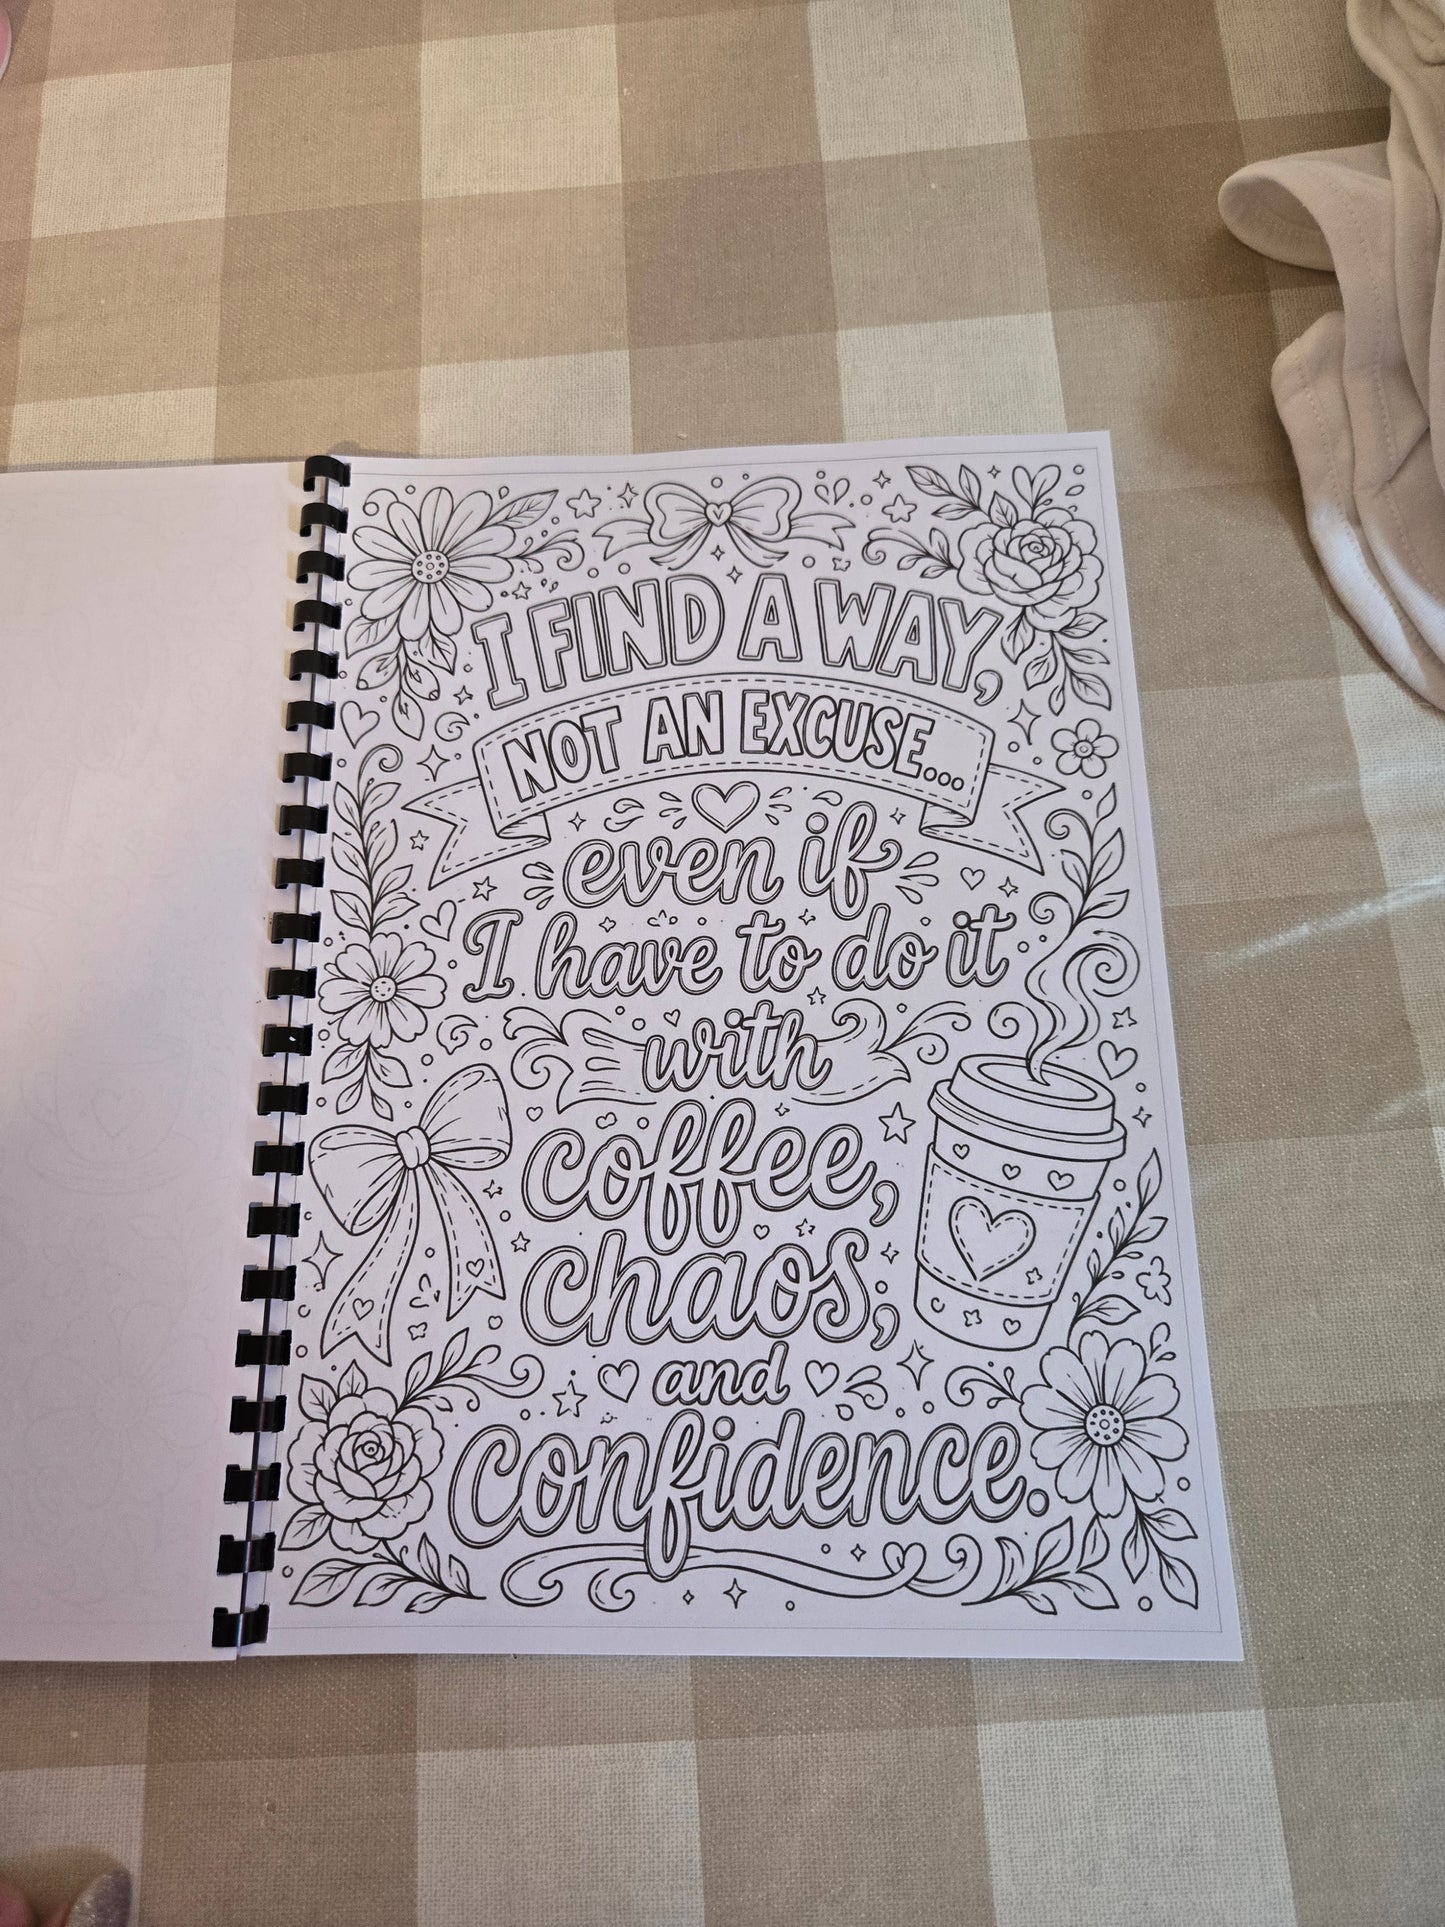 I FIND A WAY,
NOT AN EXCUSE...
even if
I have to do it
with
coffee,
chaos,
and
confidence.